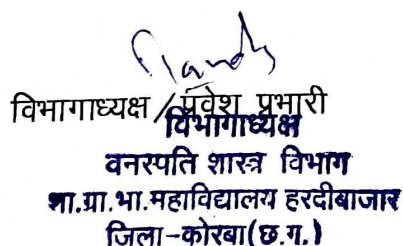 विभागाध्यक्ष / प्रवेश प्रभारी
विभागाध्यक्ष
वनस्पति शास्त्र विभाग
शा.ग्रा.भा.महाविद्यालय हरदीबाजार
जिला-कोरबा(छ.ग.)